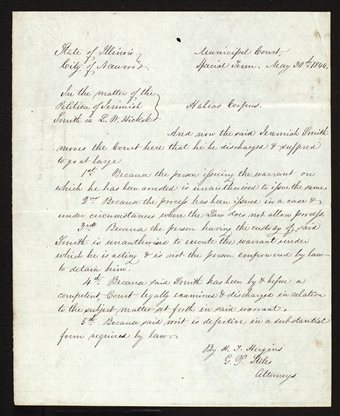 State of Illinois } Municipal Court
City of Nauvoo } Special Term. May 30th 1844.
In the matter of the
Petition of Jeremiah } Habeas Corpus.
Smith vs L. W. Hickok
And now the said Jeremiah Smith
moves the Court here that he be discharged & suffered
to go at large
1st Because the person issuing the warrant on
which he has been arrested is unauthorised to issue the same.
2nd Because the process has been issued in a case &
under circumstances where the Law does not allow process.
3rd Because the person having the custody of said
Smith is unauthorised to execute the warrant under
which he is acting & is not the person empowered by law
to detain him.
4th Because said Smith has been by & before a
competent Court legally examined & discharged in relation
to the subject matter set forth in said warrant.
5th Because said writ is defective in a substantial
form required by law.
By H. T. Hugins
G. P. Stiles
Attorneys